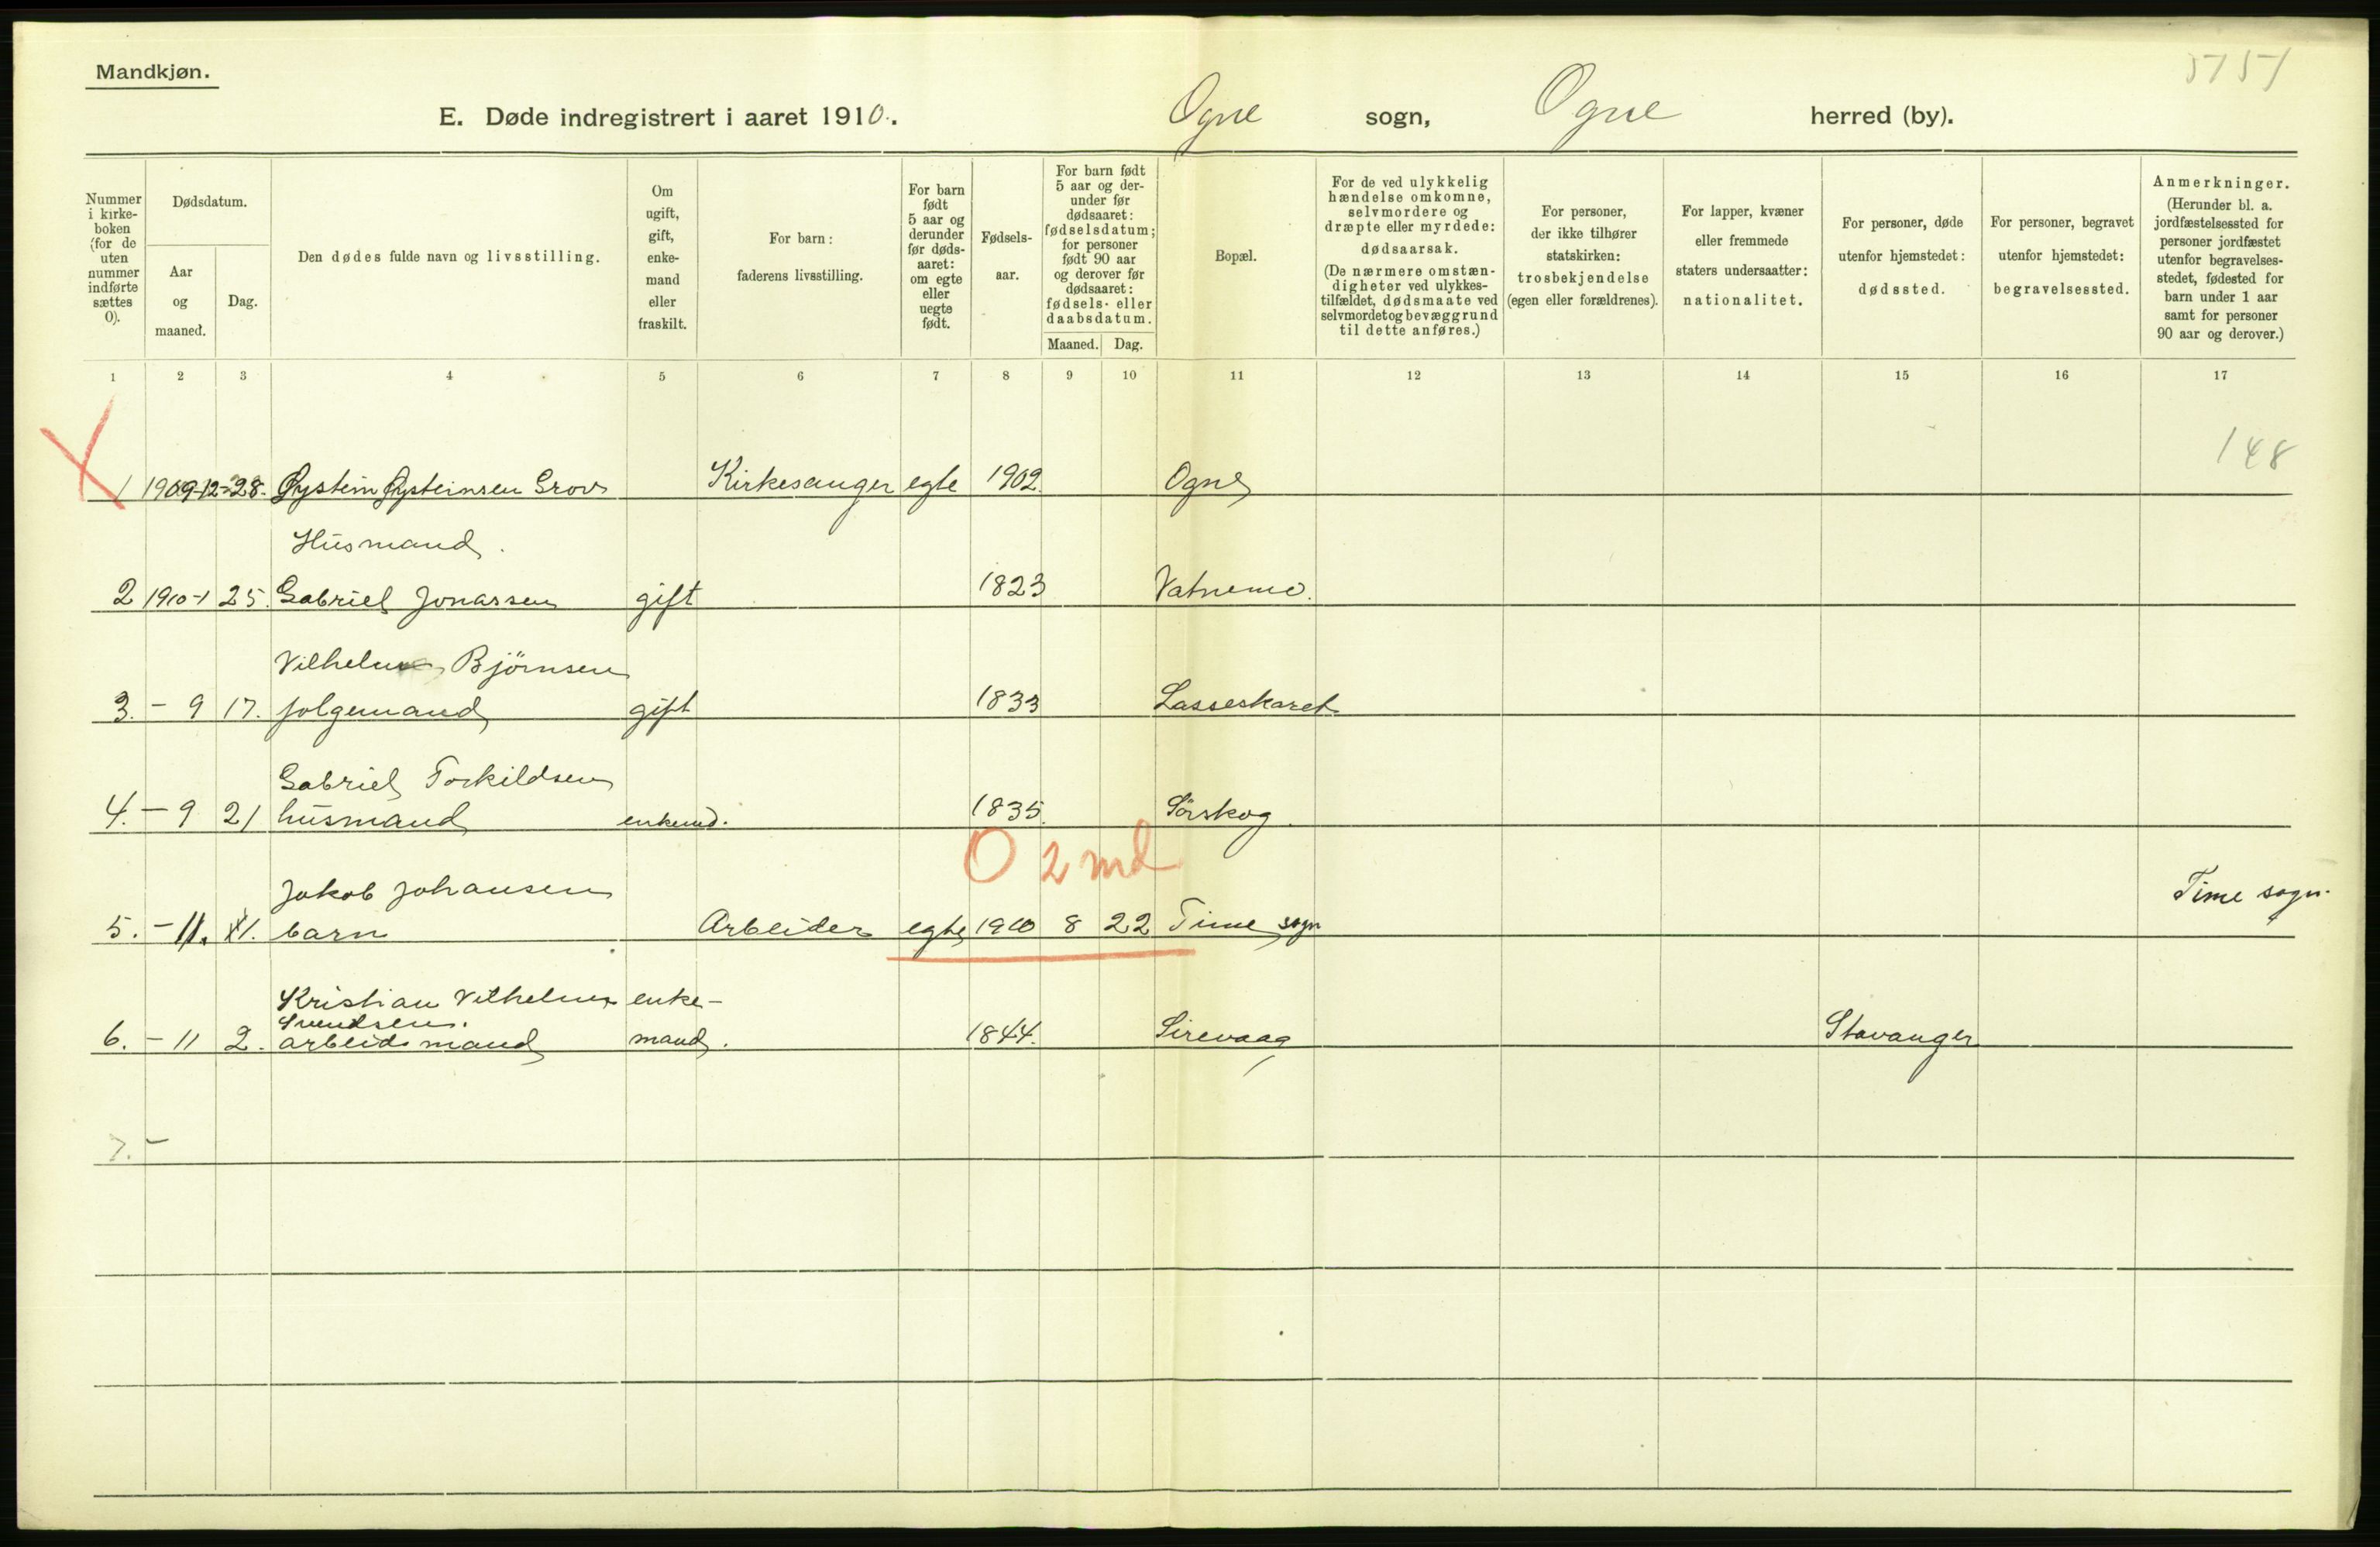 Mandkjøn.
5751
E. Døde indregistrert i aaret 1910.
Ogne sogn, Ogne herred (by).
Nummer i kirke-boken (for de uten nummer indførte sættes 0).
Dødsdatum.
Aar og maaned.
Dag.
Den dødes fulde navn og livsstilling.
Om ugift, gift, enke-mand eller fraskilt.
For barn: faderens livsstilling.
For barn født 5 aar og derunder før døds-aaret: om egte eller uegte født.
Fødsels-aar.
For barn født 5 aar og der-under før dødsaaret: fødselsdatum; for personer født 90 aar og derover før dødsaaret: fødsels- eller daabsdatum.
Maaned. Dag.
Bopæl.
For de ved ulykkelig hændelse omkomne, selvmordere og dræpte eller myrdede: dødsaarsak. (De nærmere omstæn-digheter ved ulykkes-tilfældet, dødsmaate ved selvmordet og bevæggrund til dette anføres.)
For personer, der ikke tilhører statskirken: trosbekjendelse (egen eller forældrenes).
For lapper, kvæner eller fremmede staters undersaatter: nationalitet.
For personer, døde utenfor hjemstedet: dødssted.
For personer, begravet utenfor hjemstedet: begravelsessted.
Anmerkninger. (Herunder bl. a. jordfæstelsessted for personer jordfæstet utenfor begravelses-stedet, fødested for barn under 1 aar samt for personer 90 aar og derover.)
1 2 3 4 5 6 7 8 9 10 11 12 13 14 15 16 17
148
1 1909-12-28. Øystein Øysteinsen Grov Kirkesanger egte 1902. Ogne
Husmand.
2 1910-1 25. Gabriel Jonassen gift 1823 Vatnemo.
Vilhelm Björnsen
3. - 9 17. folgemand gift 1833 Lasseskaret
Gabriel Torkildsen
4. - 9 21 husmand enkemd. 1835. Sörskog.
0 2 md
Jakob Johansen Time sogn.
5. - 11. barn Arbeider egte 1910 8 22 Time sogn
Kristian Vilhelm enke-
Svendsen.
6. - 11 2. arbeidsmand mand. 1844. Sirevaag Stavanger
7. -